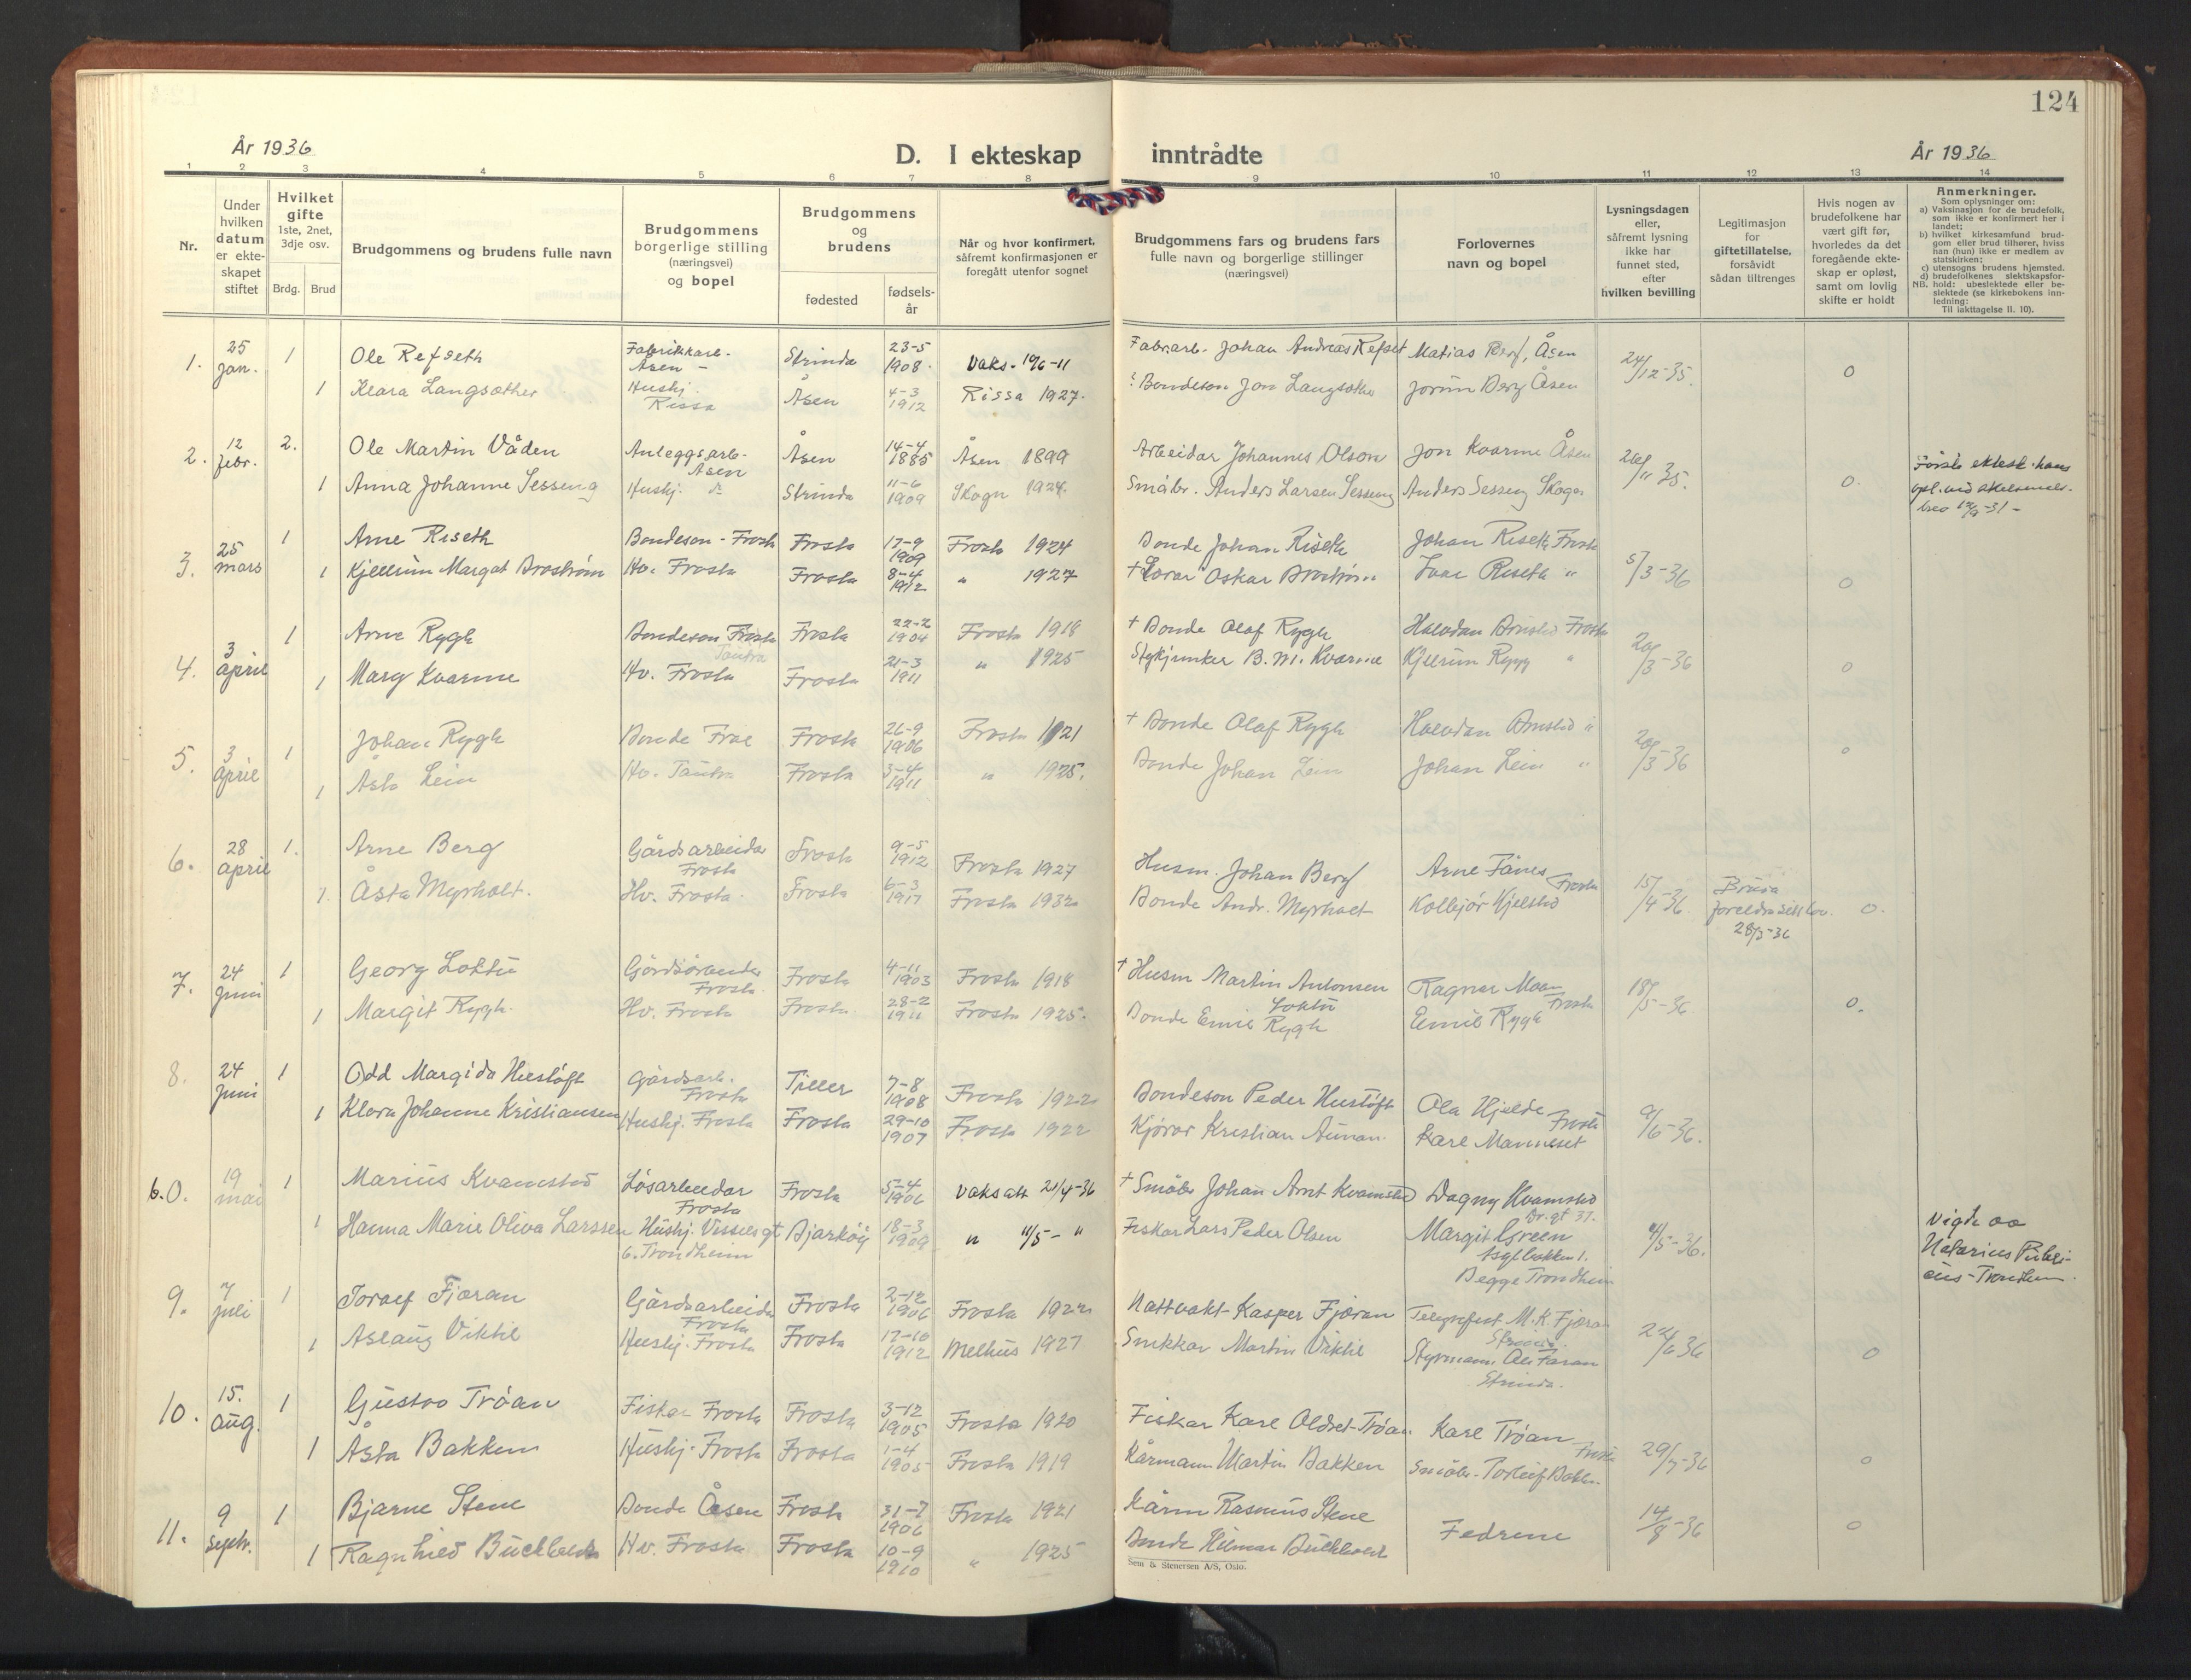 124
År 1936
D. I ekteskap inntrådte
År 1936
1 2 3 4 5 6 7 8 9 10 11 12 13 14
Nr.
Under
hvilken
datum
er ekte-
skapet
stiftet
Hvilket
gifte
1ste, 2net,
3dje osv.
Brdg. Brud
Brudgommens og brudens fulle navn
Brudgommens
borgerlige stilling
(næringsvei)
og bopel
Brudgommens
og
brudens
fødested
fødsels-
år
Når og hvor konfirmert,
såfremt konfirmasjonen er
foregått utenfor sognet
Brudgommens fars og brudens fars
fulle navn og borgerlige stillinger
(næringsvei)
Forlovernes
navn og bopel
Lysningsdagen
eller,
såfremt lysning
ikke har
funnet sted,
efter
hvilken bevilling
Legitimasjon
for
giftetillatelse,
forsåvidt
sådan tiltrenges
Hvis nogen av
brudefolkene har
vært gift før,
hvorledes da det
foregående ekte-
skap er opløst,
samt om lovlig
skifte er holdt
Anmerkninger.
Som oplysninger om:
a) Vaksinasjon for de brudefolk,
som ikke er konfirmert her i
landet;
b) hvilket kirkesamfund brud-
gom eller brud tilhører, hviss
nan (hun) ikke er medlem av
statskirken;
c) utensogns brudens hjemsted.
d) brudefolkenes slektskapsfor-
NB. hold: ubeslektede eller be-
slektede (se kirkebokens inn-
ledning:
Til iakttagelse II. 10).
1. 25 Jan. 1 Ole Refseth Fabrikkarb. Åsen Strinda 23-5 1908 Vaks. 19/6-11 Fabr.arb. Johan Andreas Refset Matias Berg, Åsen 24/12-35. 0
1 Klara Langsæther Hushj. Rissa Åsen 4-3 1912 Rissa 1927. Bondeson Jon Langsæther Jorun Berg Åsen
2. 12 febr. 2. Ole Martin Våden Anleggsarb. Åsen Åsen 14-4 1885 Åsen 1899 Arbeidar Johannes Olson Jon Kvarme Åsen 26/11 35. 0.
1 Anna Johanne Sesseng Hushj. do Strinda 11-6 1909 Skogn 1924. Småbr. Anders Larsen Sesseng Anders Sesseng Skogn
3. 25 mars 1 Arne Riseth Bondeson - Frosta Frosta 17-9 1909 Frosta 1924 Bonde Johan Riseth Johan Riseth Frosta 5/3-36 0
1 Kjellrun Margot Broström Hv. Frosta Frosta 8-4 1912 " 1927 + Oskar Broström Riseth "
4. 3 april 1 Arne Rygh Bondeson Frosta Tautra Frosta 22-2 1904 Frosta 1918 + Bonde Olaf Rygh Halvdan Arnstad Frosta 20/3-36 0
1 Marg Kvarme Hv. Frosta Frosta 21-3 1911 " 1925 Stykjunker B. M. Kvarme Kjellrun Rygg "
5. 3 april 1 Johan Rygh Bonde Frosta 26-9 1906 Frosta 1921 + Bonde Olaf Rygh Halvdan Arnstad " 20/3-36 0
1 Åsta Lein Hv. Tautra Frosta 3-4 1911 " 1925. Bonde Johan Lein Johan Lein "
6. 28 april 1. Arne Berg Gårdsarbeidar Frosta Frosta 9-5 1912 Frosta 1927 Husm. Johan Berg Arne Fånes Frosta 15/4-36 0.
1 Åsta Myrholt. Hv. Frosta. Frosta 6-3 1917 Frosta 1932 Bonde Andr. Myrholt Kjelstad
28/3-36
7. 24 Juni 1 Georg Loktu Gårdsarbeider Frosta Frosta 4-11 1903 Frosta 1918 + Husm Martin Antonsen Loktu Ragnar Moan Frosta 18/5-36 0.
1 Margit Rygh. Hv. Frosta Frosta. 28-2 1911 Frosta 1925. Bonde Emil Rygh Emil Rygh
8. 24 Juni 1 Odd Margido Hustøft Gårdsarb. Frosta Tiller 7-8 1908 Frosta 1922 Bondeson Peder Hustøft Ola Hjelde Frosta 9/6-36.
1 Klara Johanne Kristiansen Hushj. Frosta Frosta 29-10 1907 Frosta 1922 Kjørar Kristian Aunan. Karl Manneset
b.o. 19 mai 1 Marius Kvamstad Løsarbeidar Frosta Frosta 5-4 1906 Vaks att 21/4-36 + Småbr Johan Arnt Kvamstad Dagny Kvamstad 11/5-36.
1 Hanna Marie Oliva Larssen Hushj. Vessels gt 6. Trondheim Bjarkøy 18-3 1909 " 11/5- " Fiskar Lars Peder Olsen Margit Green Begge Trondheim
Vigde av
Notarius Publi-
cus - Trondheim.
9. 7 juli 1 Toralf Fjæran Gårdsarbeidar Frosta Frosta 2-12 1906 Frosta 1922 Nattvakt Kasper Fjæran M. K. Fjæran Strinda 22/6 36 0
1 Aslaug Viktil Hushj. Frosta Frosta 17-10 1912 Melhus 1927 Snikkar Martin Viktil Styrmann Strinda.
10. 15. aug. 1 Gustav Trøan Fiskar Frosta Frosta 3-12 1905 Frosta 1920 Fiskar Karl Oldset-Trøan Karl Trøan Frosta 29/7-36 0
1 Åsta Bakken Hushj. Frosta Frosta 1-4 1905 Frosta 1919 Kårmann Martin Bakken Småbr. Torleif Bakken.
11. 9 septr. 1 Bjarne Stene Bonde Åsen Frosta 31-7 1906 Frosta 1921 Kårm Rasmus Stene Fedrene 14/8-36 0
1 Ragnhild Buchholdt Hv. Frosta Frosta 10-9 1910 " 1925 Bonde Hilmar Buchholdt
Sem & Stenersen A/S, Oslo.